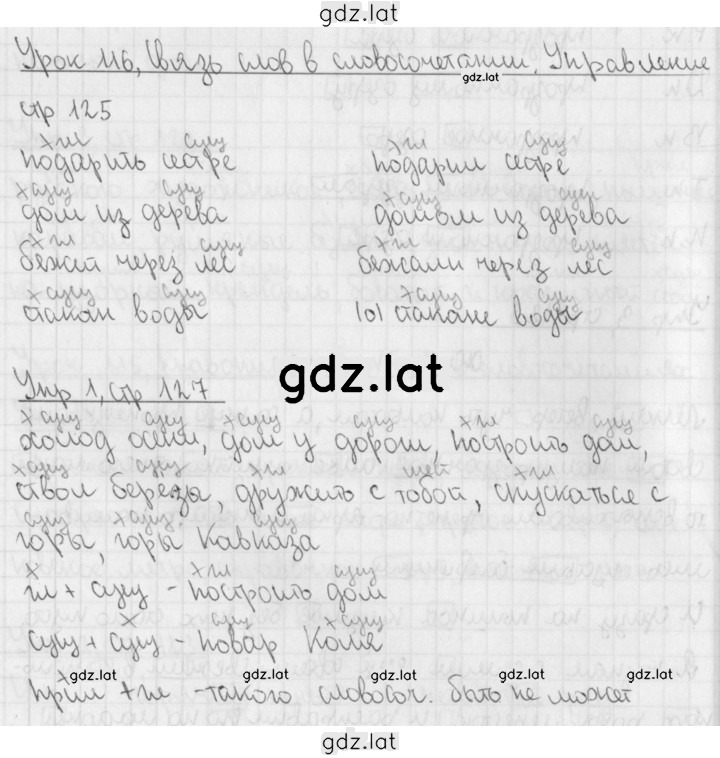 gdz.lat
Урок 116, Связь слов в словосочетании. Управление
gdz.lat
стр 125
× гл сущ × гл сущ
подарить сестре подарил сестре
× сущ сущ × сущ сущ
дом из дерева домом из дерева
× гл сущ × гл сущ
бежит через лес бежали через лес
× сущ сущ × сущ сущ
стакан воды (о) стакане воды
gdz.lat
Упр 1, стр 127
× сущ сущ × сущ сущ × гл сущ
холод осени, дом у дороги, построить дом,
× сущ сущ × гл мест × гл
ствол березы, дружить с тобой, спускаться с
сущ × сущ сущ
горы, горы Кавказа
× × гл сущ
гл + сущ - построить дом
сущ × сущ
сущ + сущ - повар Коле
gdz.lat gdz.lat gdz.lat gdz.lat gdz.lat
× прил + гл - такого словосоч. быть не может
gdz.lat